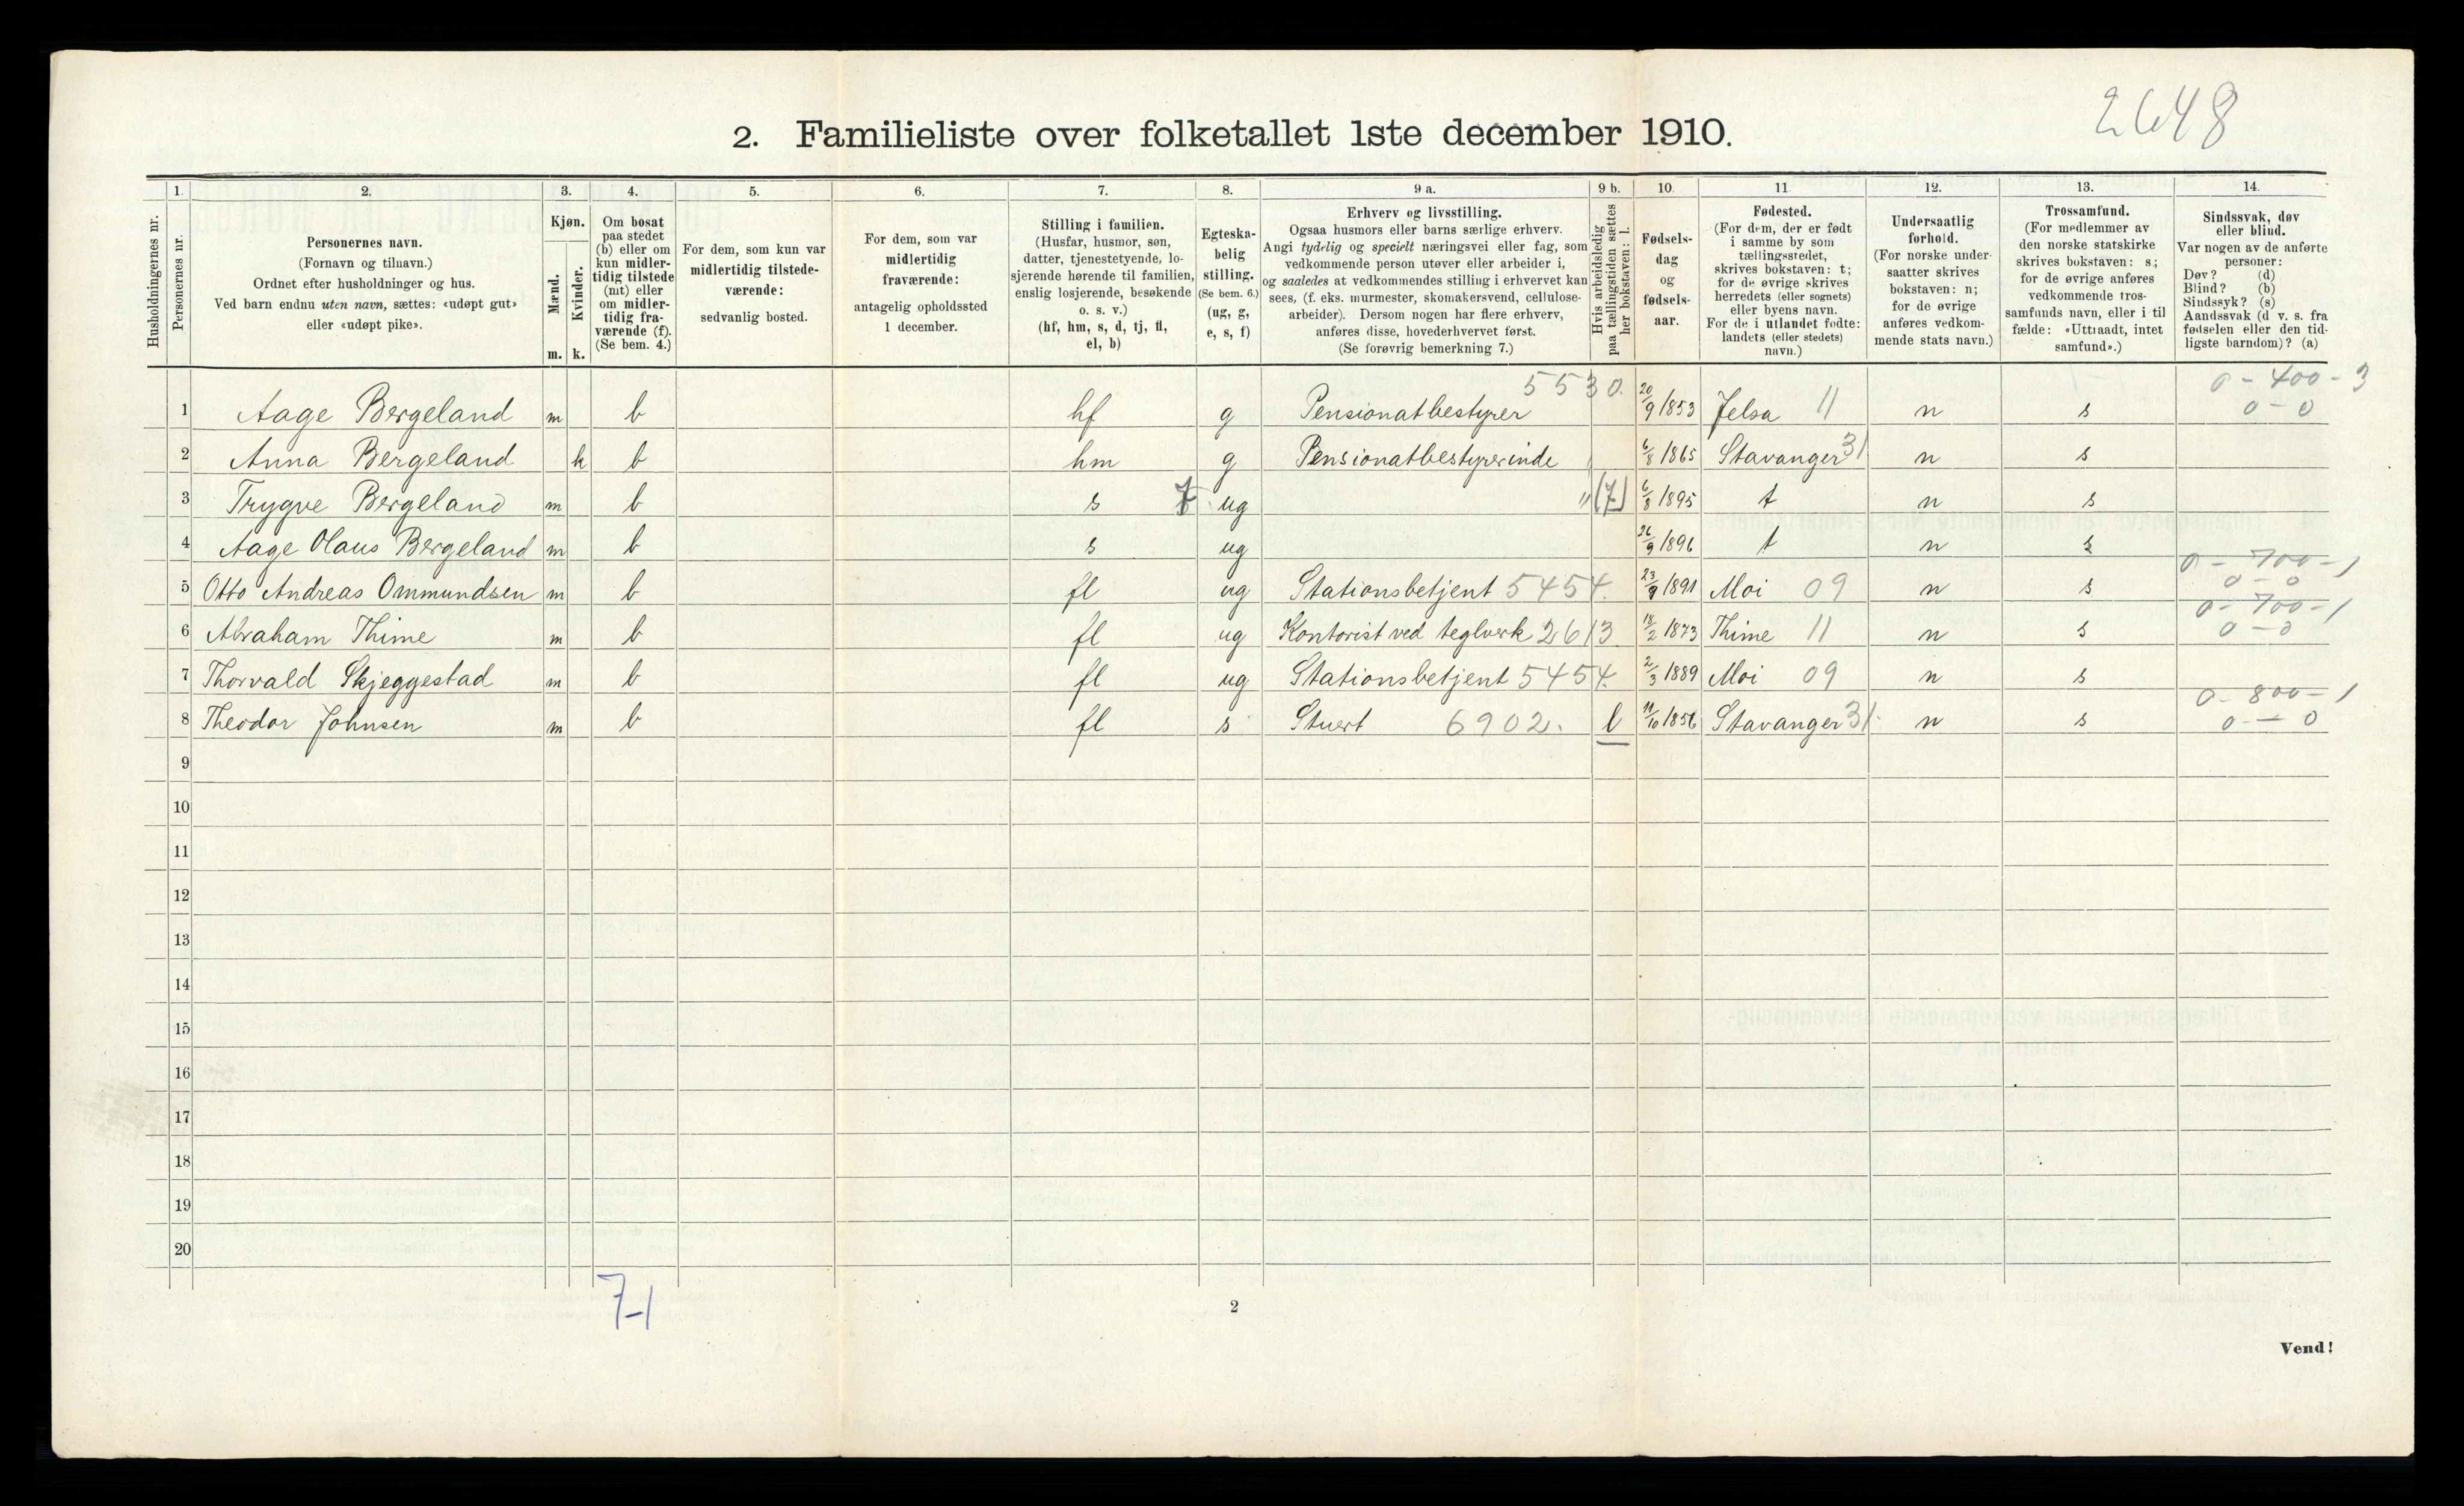 2648
2. Familieliste over folketallet 1ste december 1910.
Husholdningernes nr.
1. Personernes nr.
2. Personernes navn. (Fornavn og tilnavn.) Ordnet efter husholdninger og hus. Ved barn endnu uten navn, sættes: «udøpt gut» eller «udøpt pike».
3. Kjøn. Mænd. m. Kvinder. k.
4. Om bosat paa stedet (b) eller om kun midlertidig tilstede (mt) eller om midlertidig fraværende (f). (Se bem. 4.)
5. For dem, som kun var midlertidig tilstedeværende: sedvanlig bosted.
6. For dem, som var midlertidig fraværende: antagelig opholdssted 1 december.
7. Stilling i familien. (Husfar, husmor, søn, datter, tjenestetyende, losjerende hørende til familien, enslig losjerende, besøkende o. s. v.) (hf, hm, s, d, tj, fl, el, b)
8. Egteskabelig stilling. (Se bem. 6.) (ug, g, e, s, f)
9 a. Erhverv og livsstilling. Ogsaa husmors eller barns særlige erhverv. Angi tydelig og specielt næringsvei eller fag, som vedkommende person utøver eller arbeider i, og saaledes at vedkommendes stilling i erhvervet kan sees, (f. eks. murmester, skomakersvend, cellulosearbeider). Dersom nogen har flere erhverv, anføres disse, hovederhvervet først. (Se forøvrig bemerkning 7.)
9 b. Hvis arbeidsledig paa tællingstiden sættes her bokstaven: l.
10. Fødselsdag og fødselsaar.
11. Fødested. (For dem, der er født i samme by som tællingsstedet, skrives bokstaven: t; for de øvrige skrives herredets (eller sognets) eller byens navn. For de i utlandet fødte: landets (eller stedets) navn.)
12. Undersaatlig forhold. (For norske undersaatter skrives bokstaven: n; for de øvrige anføres vedkommende stats navn.)
13. Trossamfund. (For medlemmer av den norske statskirke skrives bokstaven: s; for de øvrige anføres vedkommende trossamfunds navn, eller i tilfælde: «Uttraadt, intet samfund».)
14. Sindssvak, døv eller blind. Var nogen av de anførte personer: Døv? (d) Blind? (b) Sindssyk? (s) Aandssvak (d. v. s. fra fødselen eller den tidligste barndom)? (a)
5530. 0 - 400 - 3
1 Aage Bergeland m b hf g Pensionatbestyrer 20/9 1853 Jelsa 11 n s 0 - 0
2 Anna Bergeland k b hm g Pensionatbestyrerinde 6/8 1865 Stavanger 31 n s
3 Trygve Bergeland m b s 7 ug " (7) 6/8 1895 t n s
4 Aage Olaus Bergeland m b s ug 26/9 1896 t n s
0 - 700 - 1
5 Otto Andreas Ommundsen m b fl ug Stationsbetjent 5454. 23/9 1891 Moi 09 n s 0 - 0
0 - 700 - 1
6 Abraham Thime m b fl ug Kontorist ved teglverk 2613 18/2 1873 Thime 11 n s 0 - 0
7 Thorvald Skjeggestad m b fl ug Stationsbetjent 5454. 2/3 1889 Moi 09 n s
0 - 800 - 1
8 Theodor Johnsen m b fl s Stuert 6902. l 11/10 1856 Stavanger 31. n s 0 - 0
9
10
11
12
13
14
15
16
17
18
19
20
7-1
2
Vend!